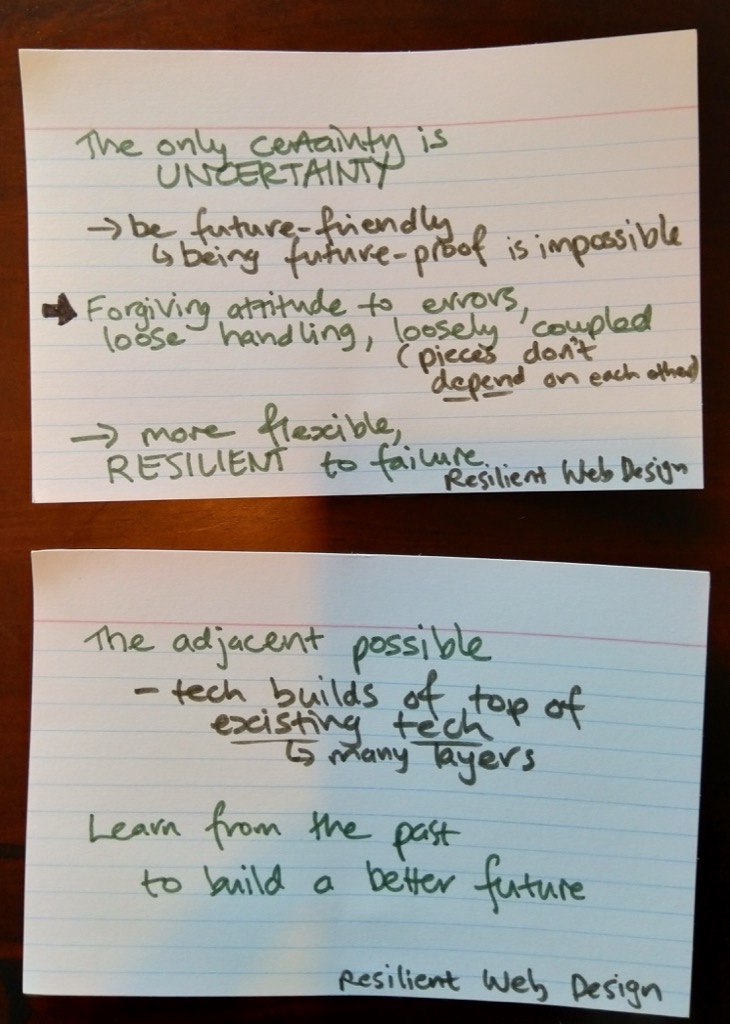 The only certainty is
UNCERTAINTY
→ be future-friendly
↳ being future-proof is impossible
➡ Forgiving attitude to errors,
loose handling, loosely coupled
(pieces don't
depend on each other)
→ more flexible,
RESILIENT to failure
Resilient Web Design
The adjacent possible
- tech builds of top of
existing tech
↳ many layers
Learn from the past
to build a better future
Resilient Web Design